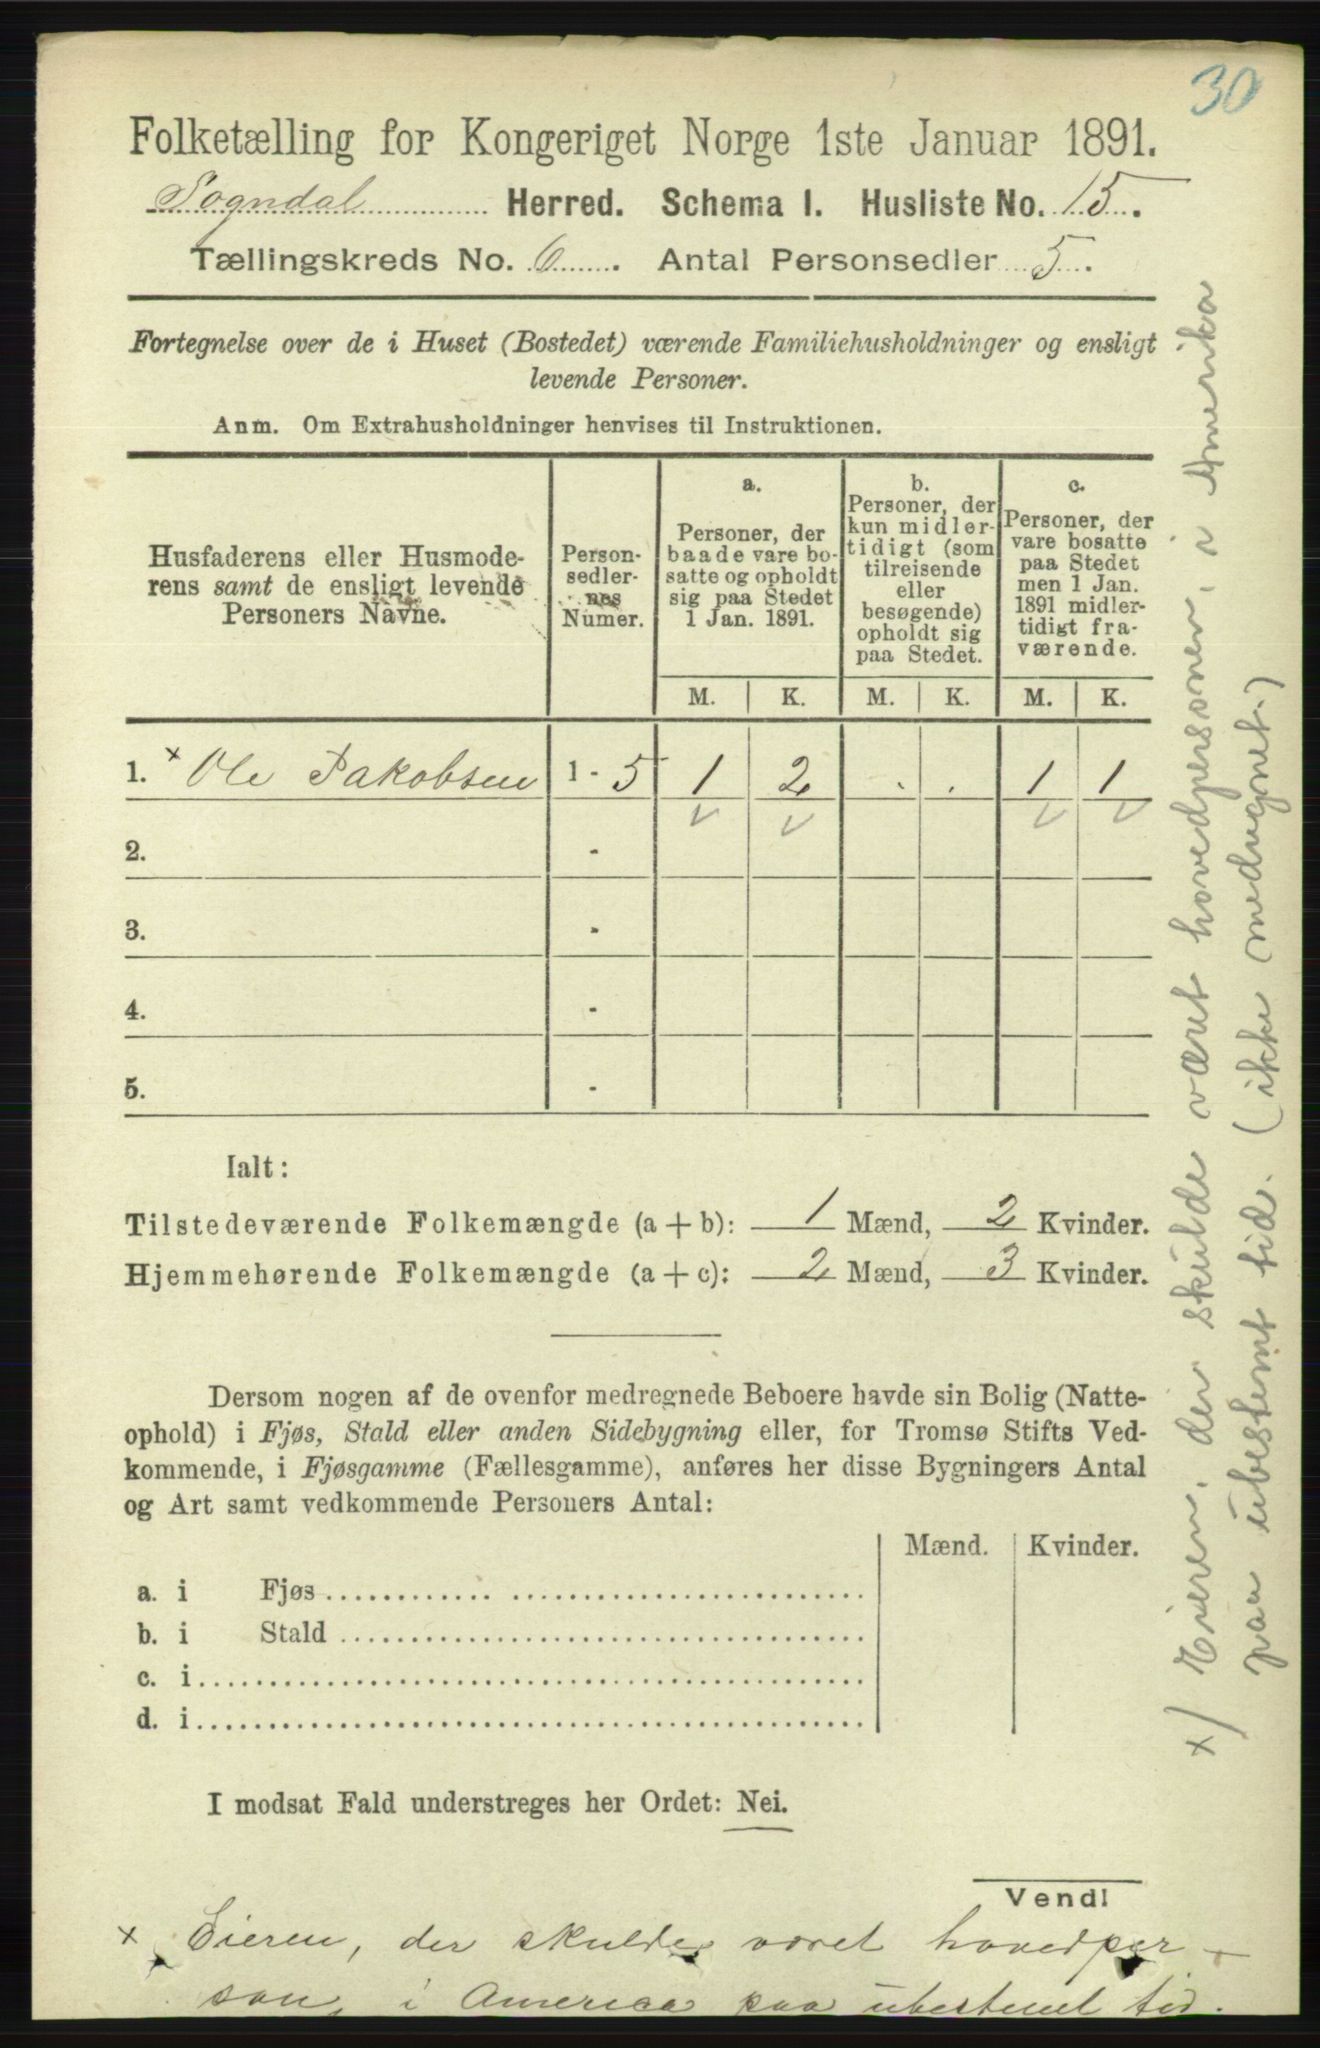 30
Folketælling for Kongeriget Norge 1ste Januar 1891.
Sogndal Herred. Schema I. Husliste No. 15.
Tællingskreds No. 6. Antal Personsedler 5.
Fortegnelse over de i Huset (Bostedet) værende Familiehusholdninger og ensligt
levende Personer.
Anm. Om Extrahusholdninger henvises til Instruktionen.
Husfaderens eller Husmode-
rens samt de ensligt levende
Personers Navne.
Person-
sedler-
nes
Numer.
a.
Personer, der
baade vare bo-
satte og opholdt
sig paa Stedet
1 Jan. 1891.
b.
Personer, der
kun midler-
tidigt (som
tilreisende
eller
besøgende)
opholdt sig
paa Stedet.
c.
Personer, der
vare bosatte
paa Stedet
men 1 Jan.
1891 midler-
tidigt fra-
værende.
M. K. M. K. M. K.
1. x Ole Jakobsen 1 - 5 1 2 . . 1 1
2. -
3. -
4. -
5. -
Ialt:
Tilstedeværende Folkemængde (a + b): 1 Mænd, 2 Kvinder.
Hjemmehørende Folkemængde (a + c): 2 Mænd, 3 Kvinder.
Dersom nogen af de ovenfor medregnede Beboere havde sin Bolig (Natte-
ophold) i Fjøs, Stald eller anden Sidebygning eller, for Tromsø Stifts Ved-
kommende, i Fjøsgamme (Fællesgamme), anføres her disse Bygningers Antal
og Art samt vedkommende Personers Antal:
Mænd. Kvinder.
a. i Fjøs
b. i Stald
c. i
d. i
I modsat Fald understreges her Ordet: Nei.
Vend!
x Eieren, der skulde været hovedper-
son, i America paa ubestemt tid.
x) Eieren, der skulde været hovedpersonen, i Amerika
paa ubestemt tid. (ikke medregnet.)